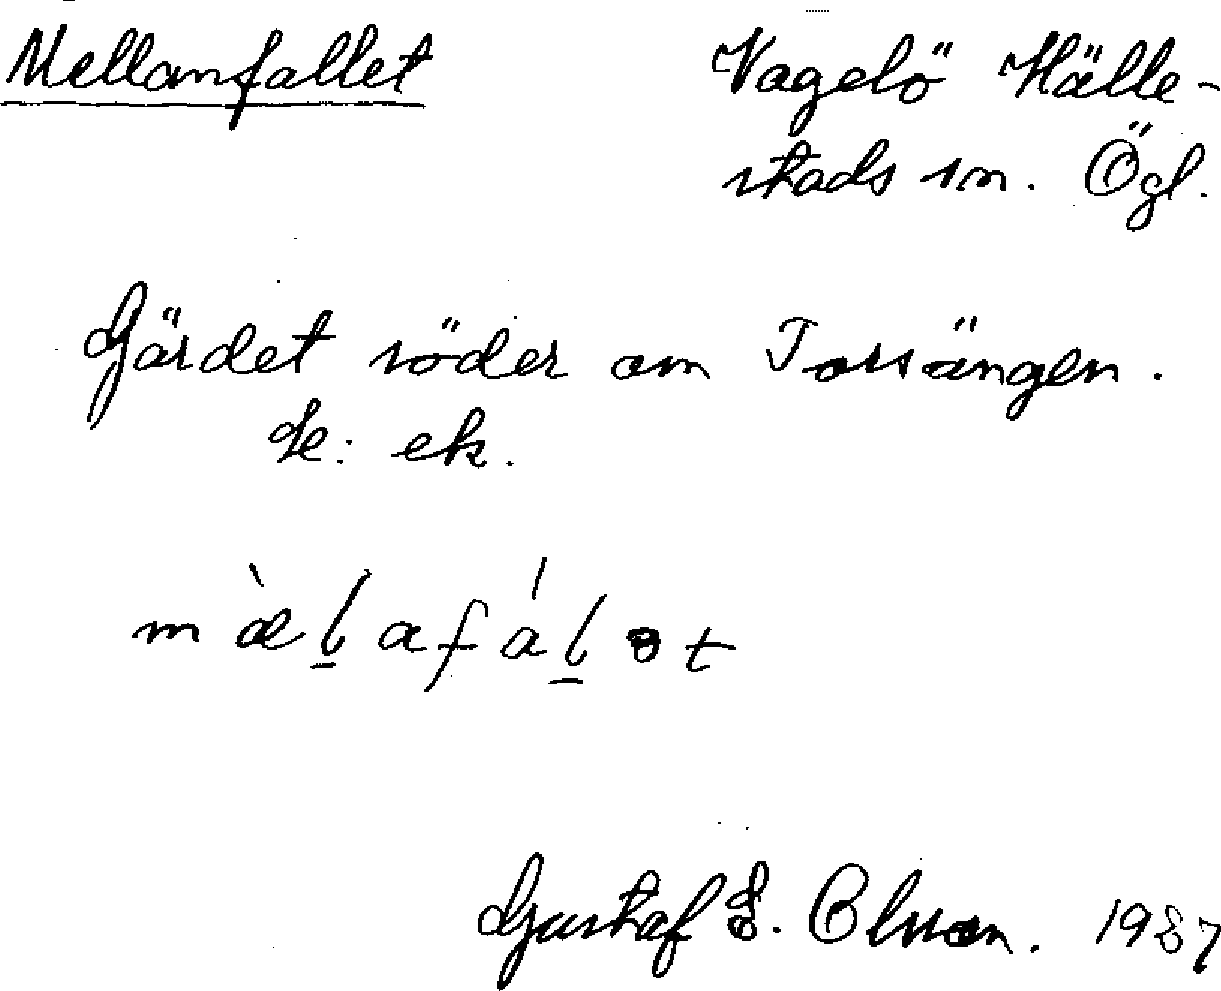 Mellanfallet Vagelö Hälle-
stads sn. Ögl.
Gärdet söder om Torsängen.
Le: ek.
m æ̀ l̲ a f á l̲ ə t
Gustaf E. Olsson. 1937